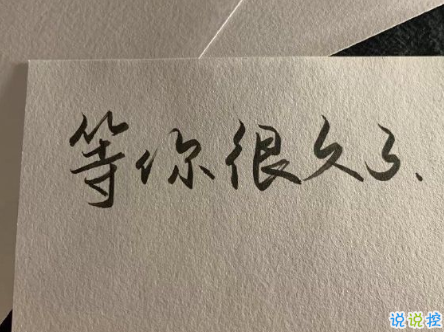 等你很久了、
说说控